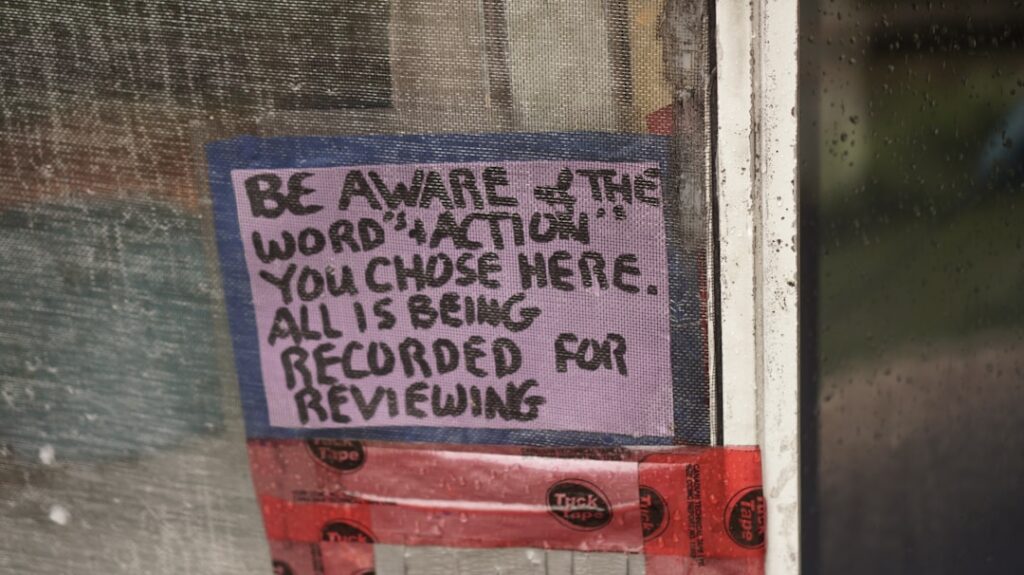 BE AWARE of THE
WORD"S + ACTION"
YOU CHOSE HERE.
ALL IS BEING
RECORDED FOR
REVIEWING
Tuck
Tape
Tuck
Tape
Tuck
Tape
Tuck
Tape
Tuck